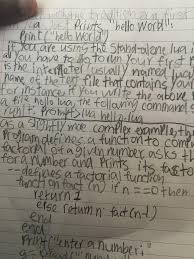 a " Prints "hello World":
Print("hello World")
If you are using the Stand-alone lua in
all you have to do to run your first P
is the interpreter (usually named lua
name of the text file that contains your
for instance if you write the above
a file hello lua the following command
run it Prompt> lua hello.lua
as a SLIGHTLY more complex example, the
Program defines a function to comp
factorial of a given number asks th
for a number and Prints its facto
--defines a factorial function
function fact (n) if n ==0 then
return 1
else return n* fact (n-1)
end
end
Print("enter a number: